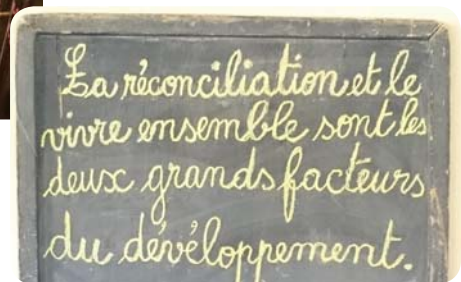 La réconciliation et le
vivre ensemble sont les
deux grands facteurs
du développement.